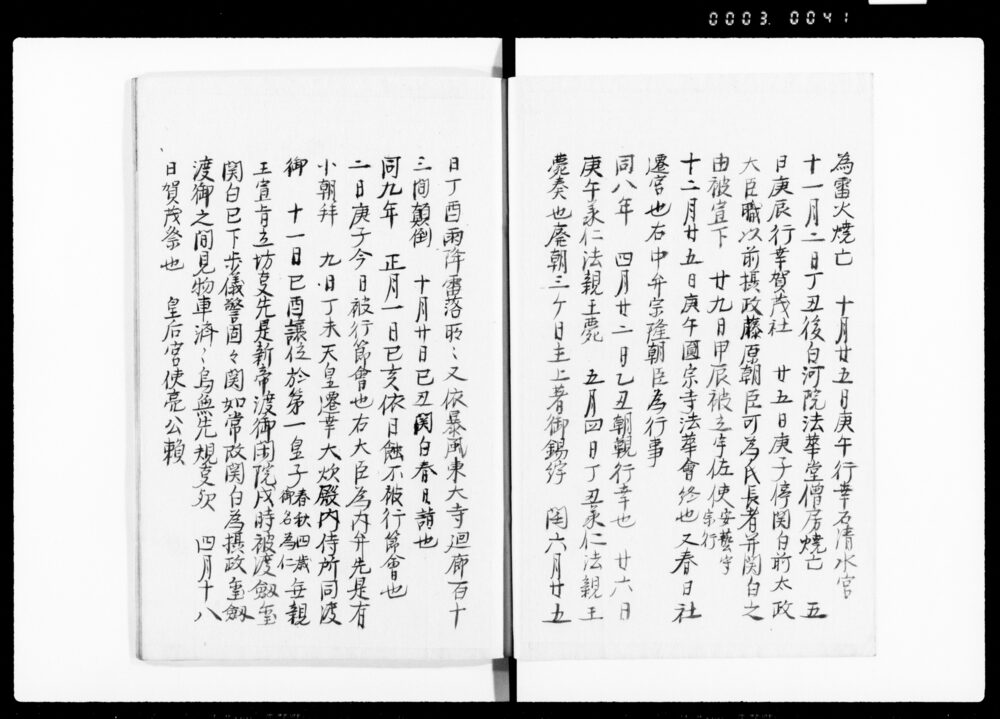 0003 0041
為雷火燒亡　十月廿五日庚午行幸石清水宮
十一月二日丁丑後白河院法華堂僧房燒亡　五
日庚辰行幸賀茂社　廿五日庚子停関白前太政
大臣職以前摂政藤原朝臣可為氏長者并関白之
由被宣下　廿九日甲辰被立宇佐使安藝守宗行
十二月廿五日庚午國宗寺法華會終也又春日社
遷宮也右中弁宗隆朝臣為行事
同八年　四月廿二日乙丑朝覲行幸也　廿六日
庚午承仁法親王薨　五月四日丁丑承仁法親王
薨奏也廃朝三ケ日主上著御錫紵　閏六月廿五
日丁酉雨降雷落所〻又依暴風東大寺廻廊百十
三間顛倒　十月廿日己丑関白春日詣也
同九年　正月一日己亥依日蝕不被行節會也
二日庚子今日被行節會也右大臣為内弁先是有
小朝拝　九日丁未天皇遷幸大炊殿内侍所同渡
御　十一日己酉讓位於第一皇子春秋四歳御名為仁無親
王宣旨立坊㕝先是新帝渡御閑院戌時被渡劔璽
関白已下歩儀警固々関如常改関白為摂政璽劔
渡御之間見物車済〻烏魚先規㕝欤　四月十八
日賀茂祭也　皇后宮使亮公頼